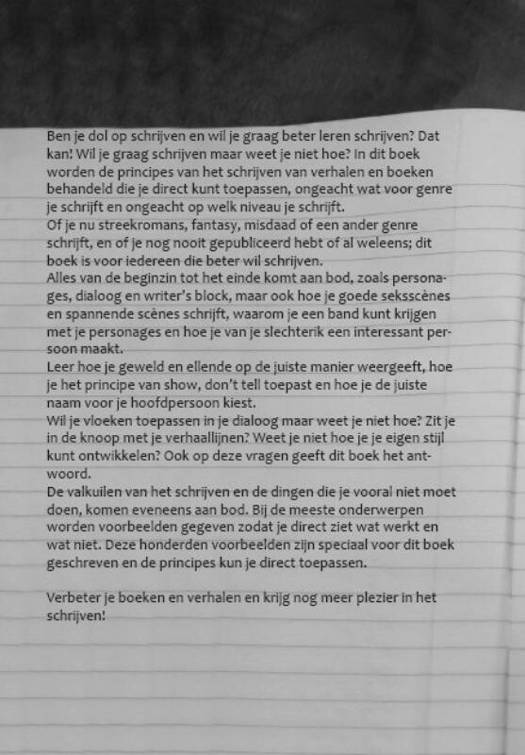 Ben je dol op schrijven en wil je graag beter leren schrijven? Dat
kan! Wil je graag schrijven maar weet je niet hoe? In dit boek
worden de principes van het schrijven van verhalen en boeken
behandeld die je direct kunt toepassen, ongeacht wat voor genre
je schrijft en ongeacht op welk niveau je schrijft.
Of je nu streekromans, fantasy, misdaad of een ander genre
schrijft, en of je nog nooit gepubliceerd hebt of al weleens; dit
boek is voor iedereen die beter wil schrijven.
Alles van de beginzin tot het einde komt aan bod, zoals persona-
ges, dialoog en writer's block, maar ook hoe je goede seksscènes
en spannende scènes schrijft, waarom je een band kunt krijgen
met je personages en hoe je van je slechterik een interessant per-
soon maakt.
Leer hoe je geweld en ellende op de juiste manier weergeeft, hoe
je het principe van show, don't tell toepast en hoe je de juiste
naam voor je hoofdpersoon kiest.
Wil je vloeken toepassen in je dialoog maar weet je niet hoe? Zit je
in de knoop met je verhaallijnen? Weet je niet hoe je je eigen stijl
kunt ontwikkelen? Ook op deze vragen geeft dit boek het ant-
woord.
De valkuilen van het schrijven en de dingen die je vooral niet moet
doen, komen eveneens aan bod. Bij de meeste onderwerpen
worden voorbeelden gegeven zodat je direct ziet wat werkt en
wat niet. Deze honderden voorbeelden zijn speciaal voor dit boek
geschreven en de principes kun je direct toepassen.
Verbeter je boeken en verhalen en krijg nog meer plezier in het
schrijven!